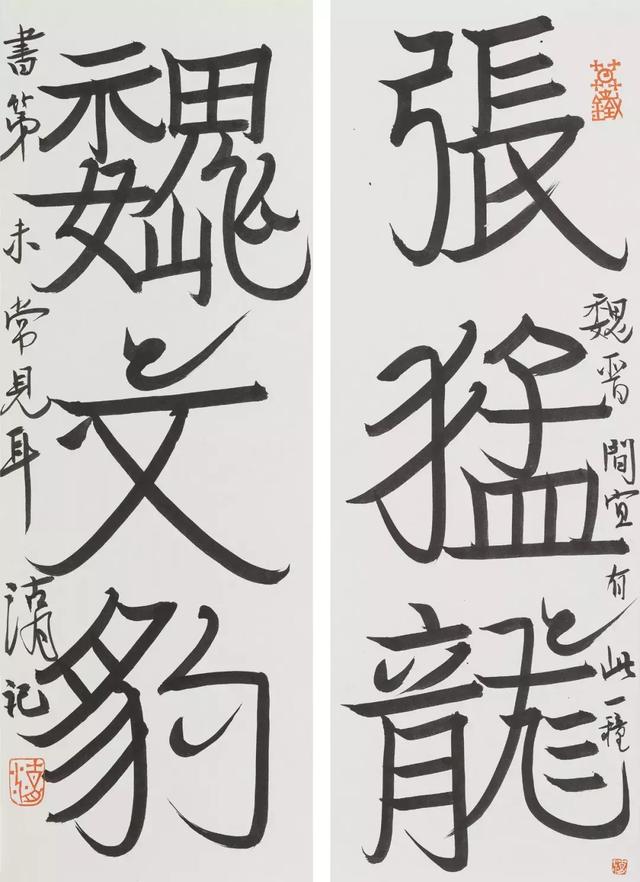 張猛龍
魏晋間宜有此一種
魏文豹
書第未常見耳
記